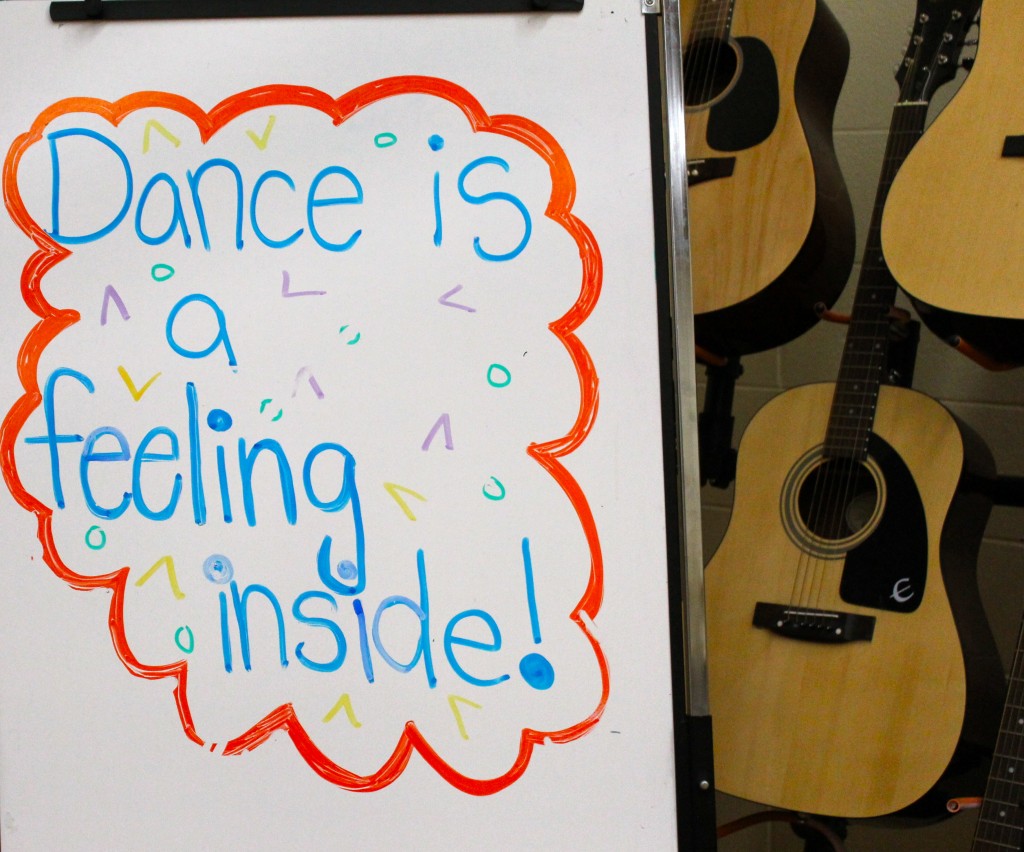 Dance is
a
feeling
inside!